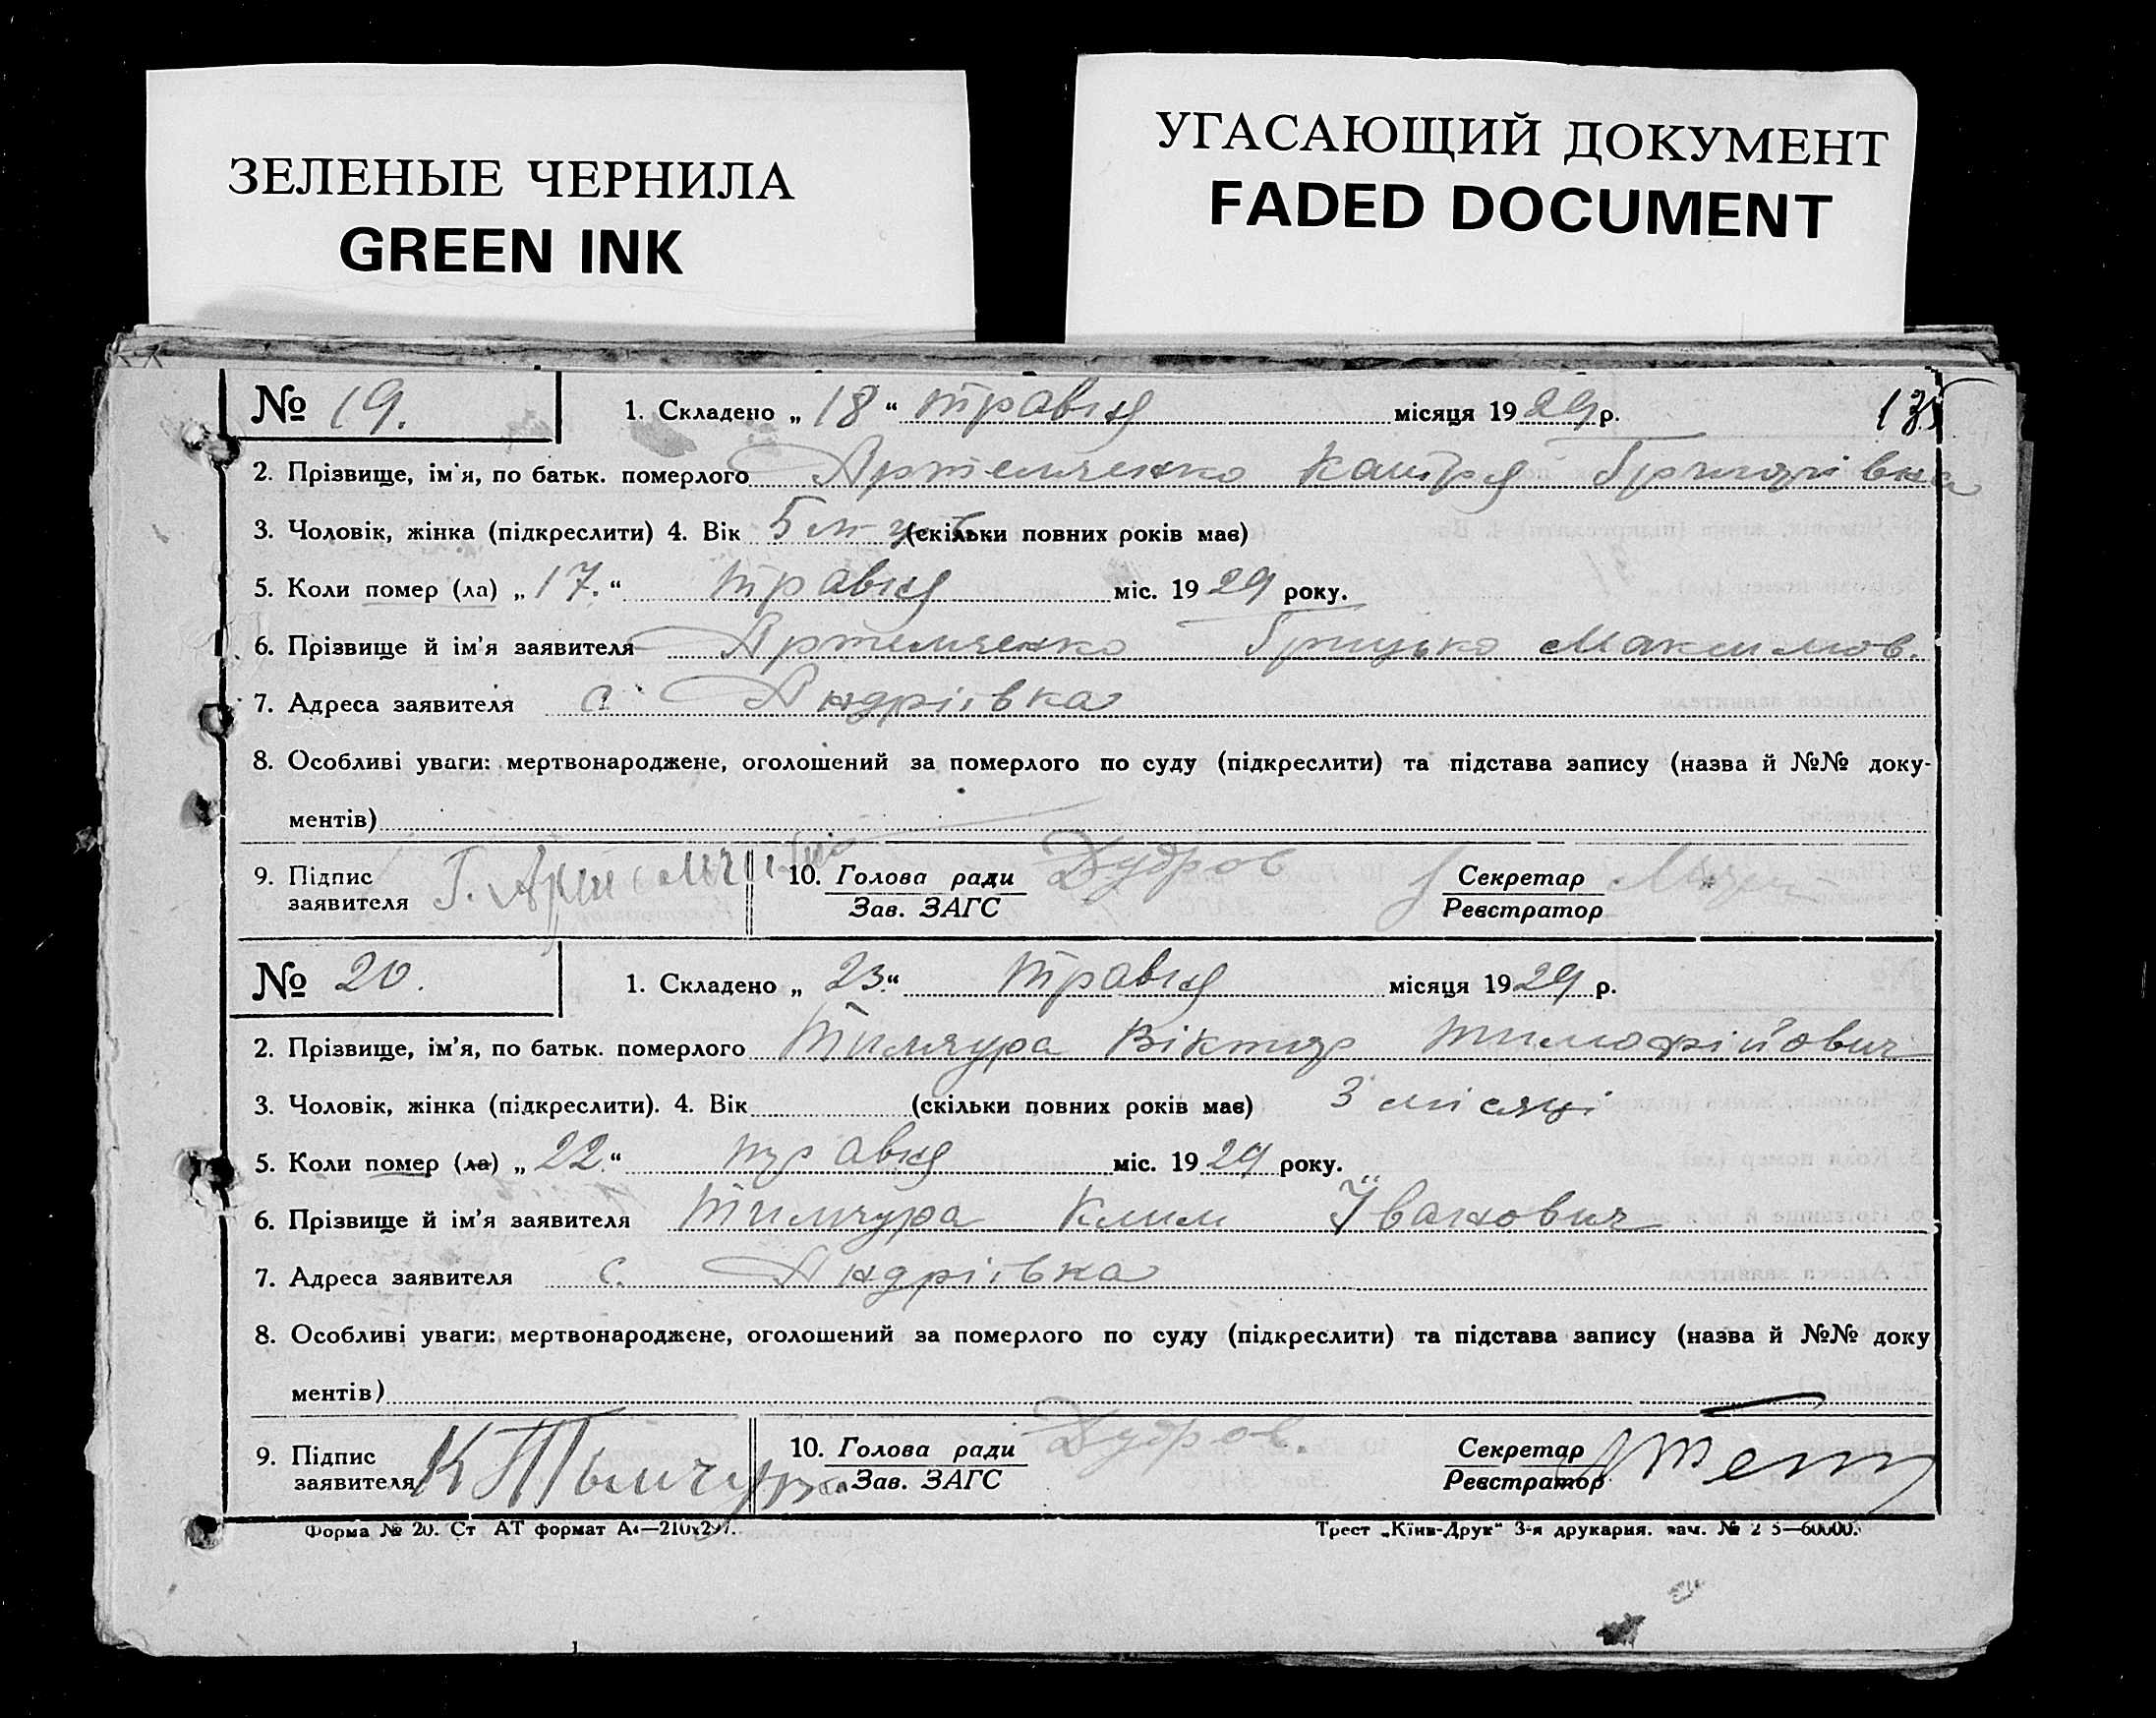 ЗЕЛЕНЫЕ ЧЕРНИЛА
GREEN INK
УГАСАЮЩИЙ ДОКУМЕНТ
FADED DOCUMENT
№ 19. 1. Складено „18“ травня місяця 1929 р. 135
2. Прізвище, ім'я, по батьк. померлого Артемченко Катря Григорівна
3. Чоловік, жінка (підкреслити) 4. Вік 5 м-ців (скільки повних років має)
5. Коли помер (ла) „17.“ травня міс. 1929 року.
6. Прізвище й ім'я заявителя Артемченко Грицько Максимов.
7. Адреса заявителя с. Андріївка
8. Особливі уваги: мертвонароджене, оголошений за померлого по суду (підкреслити) та підстава запису (назва й №№ доку-
ментів)
9. Підпис заявителя Г. 10. Голова ради Зав. ЗАГС Секретар Реєстратор
№ 20. 1. Складено „23“ травня місяця 1929 р.
2. Прізвище, ім'я, по батьк. померлого Тимчура Віктор Тимофійович
3. Чоловік, жінка (підкреслити). 4. Вік (скільки повних років має) 3 місяці
5. Коли помер (ла) „22“ травня міс. 1929 року.
6. Прізвище й ім'я заявителя Тимчура Клим Іванович
7. Адреса заявителя с. Андріївка
8. Особливі уваги: мертвонароджене, оголошений за померлого по суду (підкреслити) та підстава запису (назва й №№ доку
ментів)
9. Підпис заявителя К Тымчура 10. Голова ради Зав. ЗАГС Секретар Реєстратор
Форма № 20. Ст АТ формат А4—210х297. Трест „Київ-Друк“ 3-я друкарня. зам. №